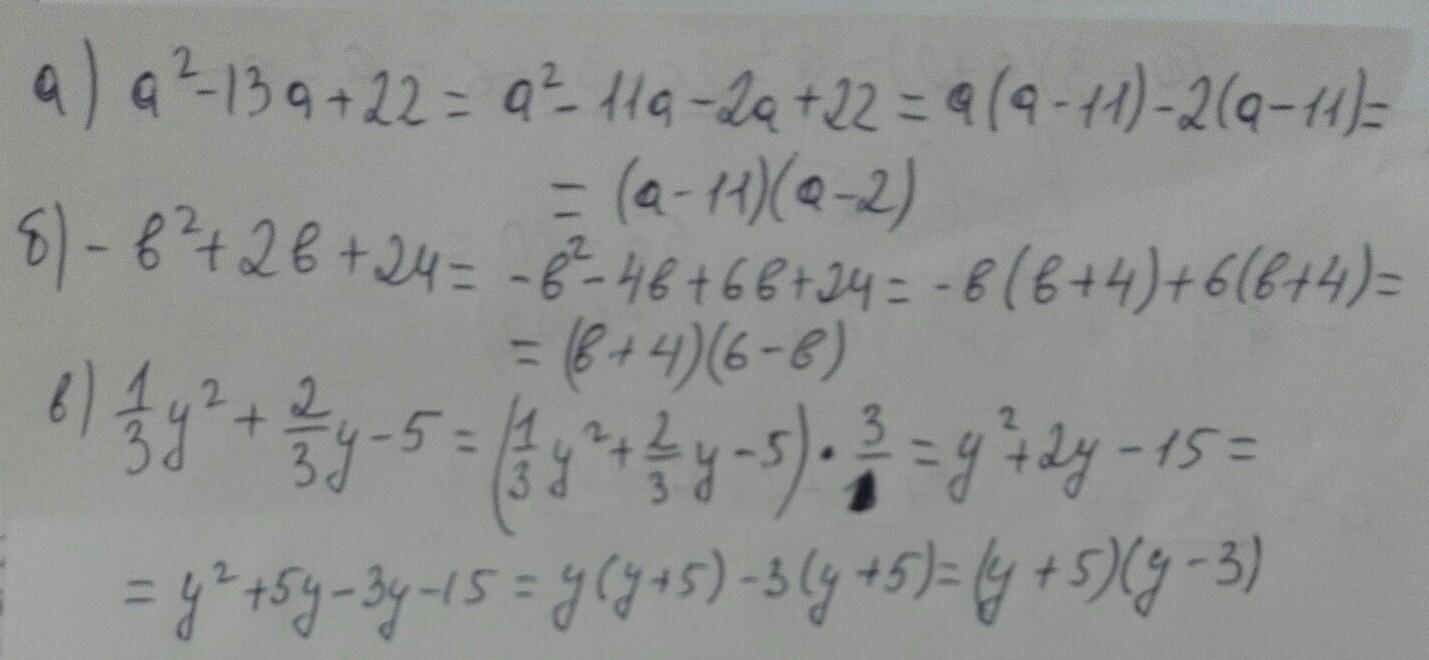 а) a² - 13a + 22 = a² - 11a - 2a + 22 = a(a - 11) - 2(a - 11) =
= (a - 11)(a - 2)
б) - в² + 2в + 24 = -в² - 4в + 6в + 24 = -в(в + 4) + 6(в + 4) =
= (в + 4)(6 - в)
в) 1/3 y² + 2/3 y - 5 = (1/3 y² + 2/3 y - 5) · 3/1 = y² + 2y - 15 =
= y² + 5y - 3y - 15 = y(y + 5) - 3(y + 5) = (y + 5)(y - 3)